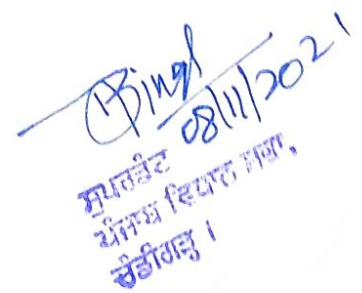 08/11/2021
ਸੁਪਰਡੰਟ
ਪੰਜਾਬ ਵਿਧਾਨ ਸਭਾ,
ਚੰਡੀਗੜ੍ਹ ।